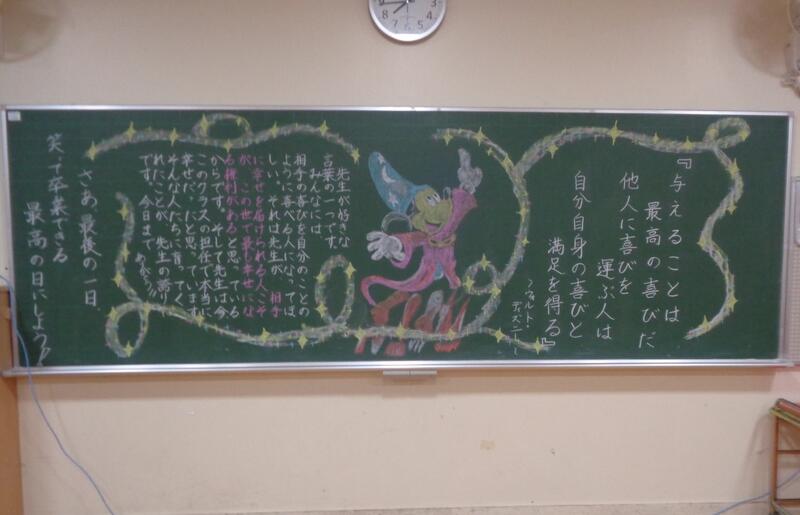 『与えることは
最高の喜びだ
他人に喜びを
運ぶ人は
自分自身の喜びと
満足を得る』
～ウォルト・
ディズニー～
先生が好きな
言葉の一つです。
みんなには
相手の喜びを自分のことの
ように喜べる人になってほ
しい。それは先生が、相手
に幸せを届けられる人こそ
が、この世で最も幸せにな
る権利があると思っている
からです。そして先生は今
このクラスの担任で本当に
幸せだ、だと思っています。
そんな人たちに育ってく
れたことが、先生の誇り
です。今日まで
ありがとう!!
さあ、最後の一日、
笑って卒業できる
最高の日にしよう!
3
4
5
6
7
8